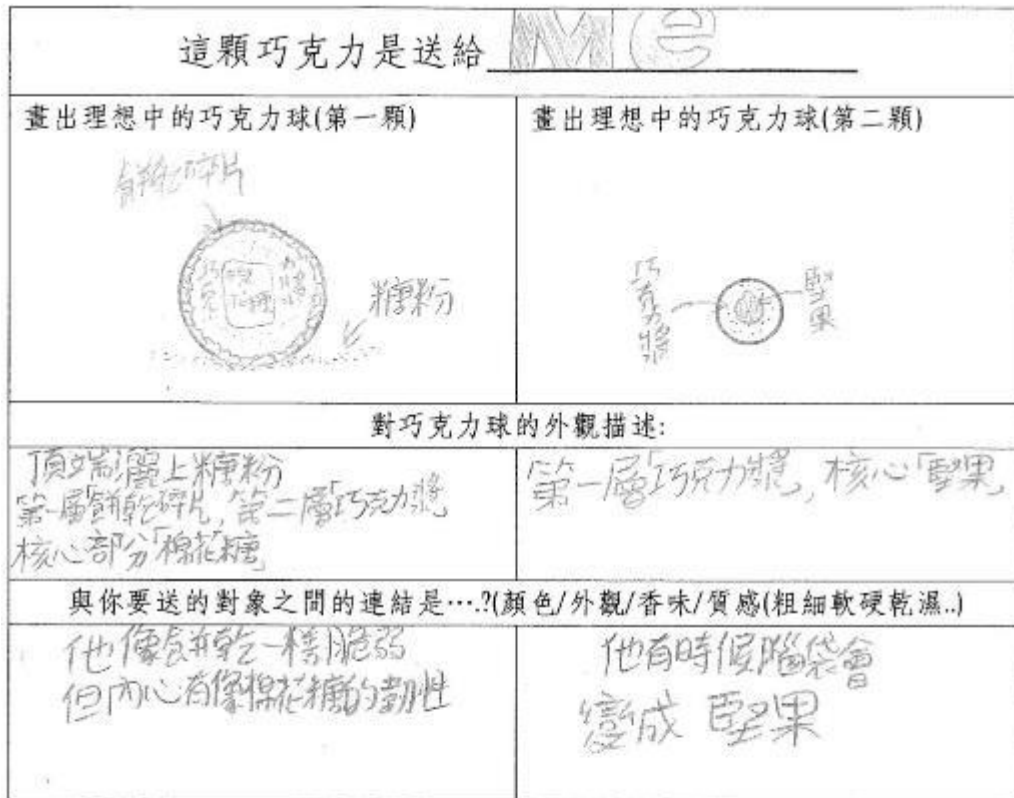 這顆巧克力是送給 Me
畫出理想中的巧克力球(第一顆)
餅乾碎片
巧克力漿
棉花糖
糖粉
畫出理想中的巧克力球(第二顆)
巧克力漿
堅果
對巧克力球的外觀描述:
頂端灑上糖粉
第一層「餅乾碎片」,第二層「巧克力漿」
核心部分「棉花糖」
第一層「巧克力漿」,核心「堅果」
與你要送的對象之間的連結是….?(顏色/外觀/香味/質感(粗細軟硬乾濕..)
他像餅乾一樣脆弱
但內心有像棉花糖的韌性
他有時候腦袋會
變成 堅果